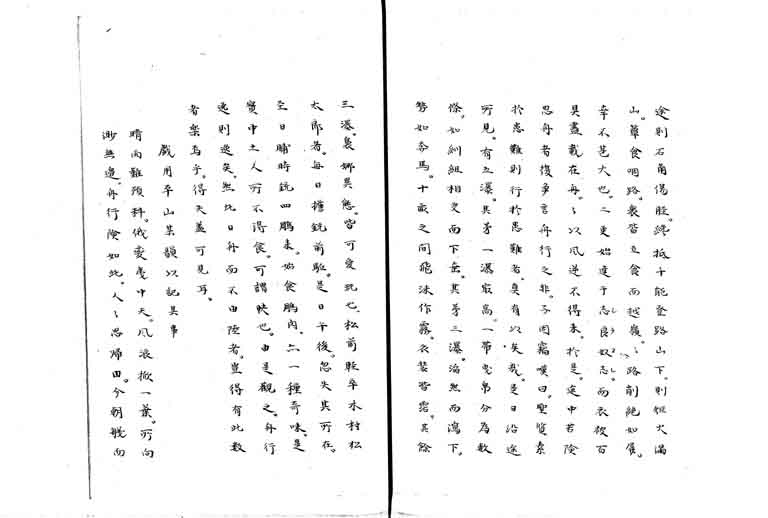 途則石角傷脛。終抵十能登路山下。則炬火滿
山。蓐食咽路。衆皆立食而越嶺。々路削絶如屏。
幸不芒大也。二更始達于志良奴志。而衣被百
具盡載在舟。々以風逆不得來。於是。途中若險
思舟者復多言舟行之非。予因竊嘆曰。聖賢素
於患難則行於患難者。良有以矣哉。是日沿途
所見。有五瀑。其第一瀑最高。一帶曳帛分為數
條。如糾組相交而下垂。其第三瀑。滔然而瀉下。
勢如奔馬。十畝之間飛沫作霧。衣装皆霑。其餘
三瀑。裊娜異態。皆可愛玩也。松前縣卒木村松
太郎者。毎日擔銃前駈。是日午後。忽失其所在。
至日晡時銃四鵰來。始食鵰肉。亦一種奇味。是
實中土人所不得食。可謂快也。由是觀之。舟行
逸則逸矣。然此日舟而不由陸者。豈得有此數
者樂焉乎。得失蓋可見耳。
戲用平山某韻以記其事
晴雨難預料。俄變曳中天。風浪掀一葉。所向
渺無邊。舟行險如此。人々思帰田。今朝艤向